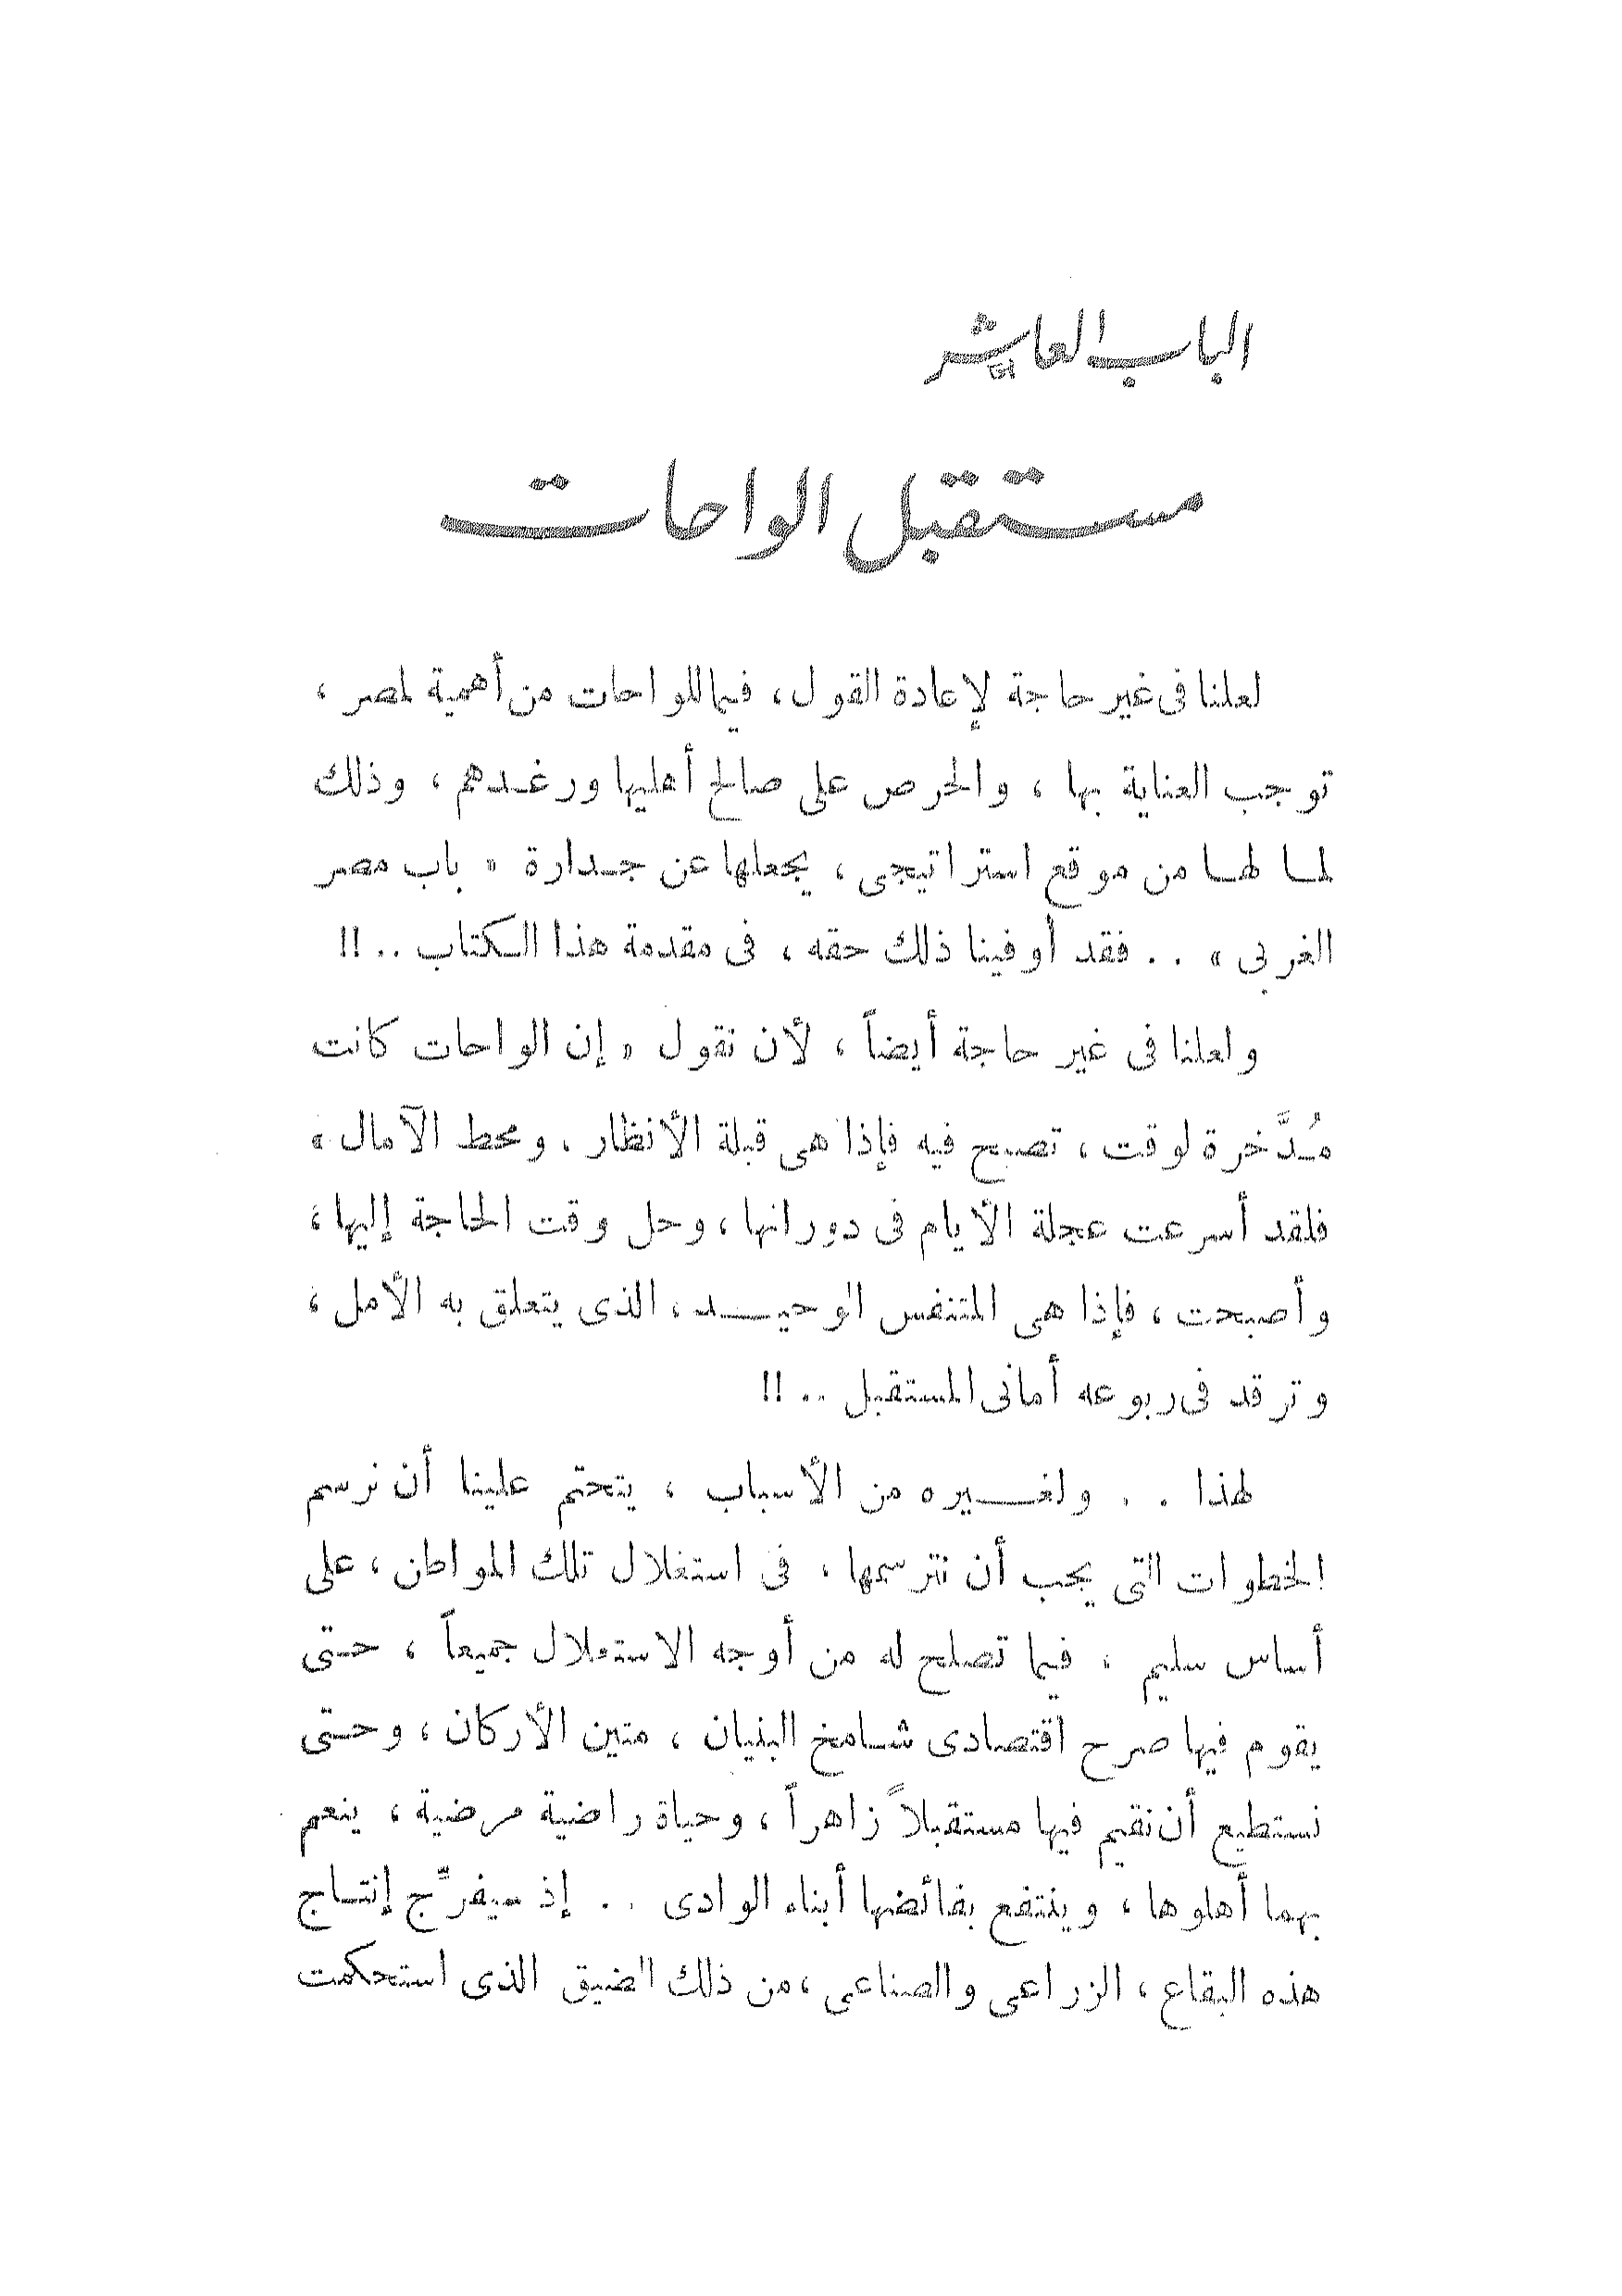 الباب العاشر
مستقبل الواحات
لعلنا فى غير حاجة لإعادة القول، فيما للواحات من أهمية لمصر ،
توجب العناية بها ، والحرص على صالح أهليها ورغـدهم ، وذلك
لمـا لهـا من موقع استراتيجى ، يجعلها عن جـدارة « باب مصر
الغربى » . . فقد أوفينا ذلك حقه ، فى مقدمة هذا الـكتاب . . !!
ولعلنا فى غير حاجة أيضاً ، لأن نقول « إن الواحات كانت
مُـدَّخرة لوقت ، تصبح فيه فإذا هى قبلة الأنظار ، ومحط الآمال »
فلقد أسرعت عجلة الأيام فى دورانها ، وحل وقت الحاجة إليها ،
وأصبحت ، فإذا هى المتنفس الوحيـــد ، الذى يتعلق به الأمل ،
وترقد فى ربوعه أمانى المستقبل . . !!
لهذا . . ولغـــيره من الأسباب ، يتحتم علينا أن نرسم
الخطوات التى يجب أن نترسمها ، فى استغلال تلك المواطن ، على
أساس سليم ، فيما تصلح له من أوجه الاستغلال جميعاً ، حـتى
يقوم فيها صرح اقتصادى شـامخ البنيان ، متين الأركان ، وحـتى
نستطيع أن نقيم فيها مستقبلاً زاهراً ، وحياة راضية مرضية ، ينعم
بهما أهلوها ، وينتفع بفائضها أبناء الوادى . . إذ سيفرِّج إنتـاج
هذه البقاع ، الزراعى والصناعى ، من ذلك الضيق الذى استحكمت